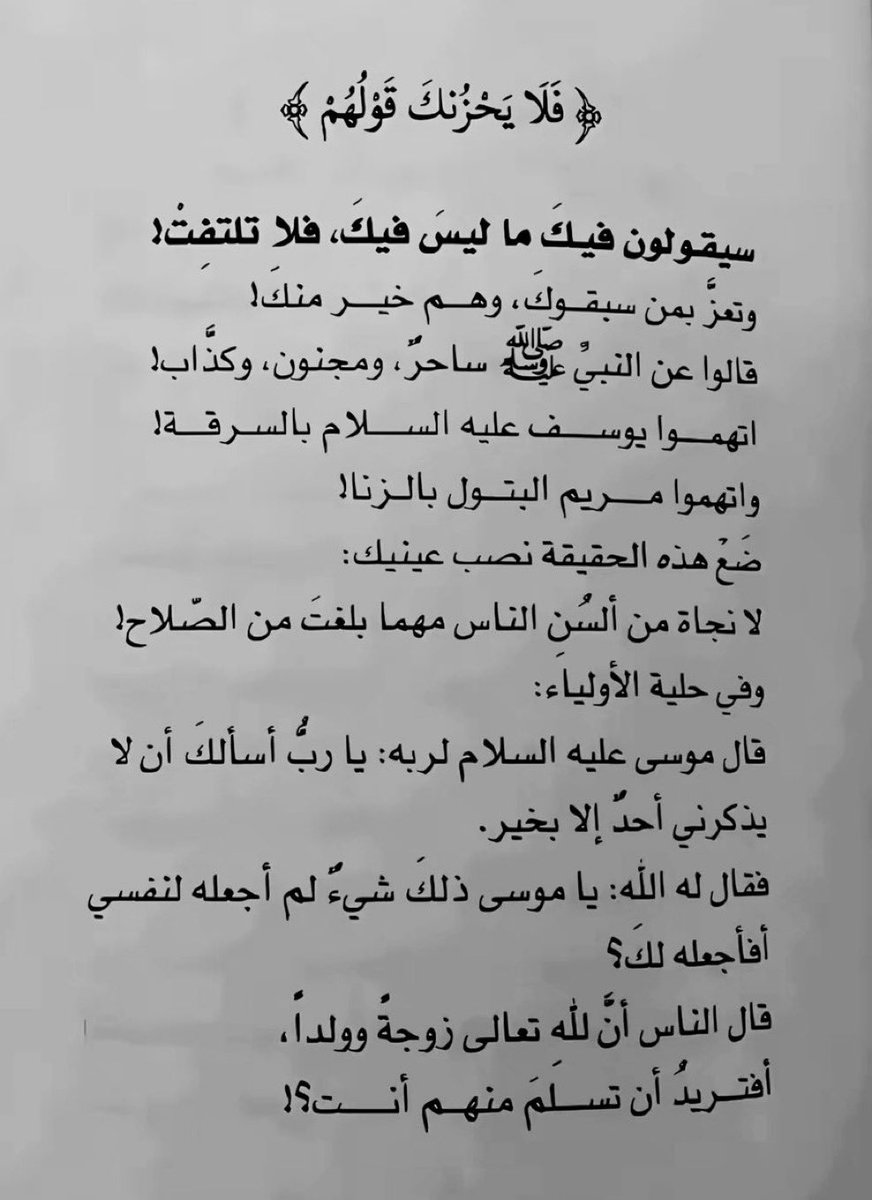 ﴿ فَلَا يَحْزُنكَ قَوْلُهُمْ ﴾
سيقولون فيكَ ما ليسَ فيكَ، فلا تلتفِتْ!
وتعزَّ بمن سبقوكَ، وهم خير منكَ!
قالوا عن النبيِّ ﷺ ساحرٌ، ومجنون، وكذَّاب!
اتهموا يوسف عليه السلام بالسرقة!
واتهموا مريم البتول بالزنا!
ضَعْ هذه الحقيقة نصب عينيك:
لا نجاة من ألسُنِ الناس مهما بلغتَ من الصّلاح!
وفي حلية الأولياء:
قال موسى عليه السلام لربه: يا ربُّ أسألكَ أن لا
يذكرني أحدٌ إلا بخير.
فقال له الله: يا موسى ذلكَ شيءٌ لم أجعله لنفسي
أفأجعله لكَ؟
قال الناس أنَّ لله تعالى زوجةً وولداً،
أفتريدُ أن تسلَمَ منهم أنت؟!